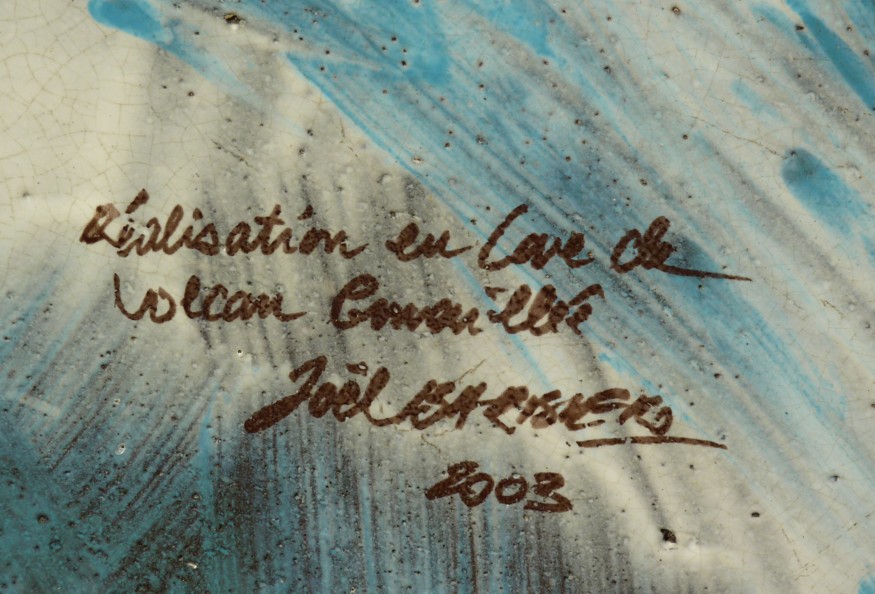 Réalisation en Lave de
Volcan Emaillée
Joël BARBIERO
2003